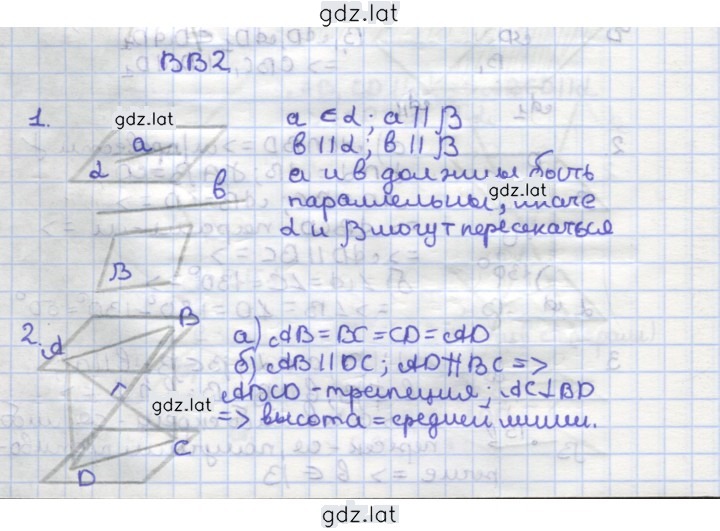 gdz.lat
ВВ2
1.
gdz.lat
a ∈ α; a ∥ β
в ∥ α; в ∥ β
а и в должны быть
параллельны, иначе
gdz.lat
α и β могут пересекаться
a
α
в
β
2.
A
B
C
D
а) AB = BC = CD = AD
б) AB ∥ DC; AD ∦ BC =>
ABCD - трапеция; AC ⊥ BD
gdz.lat
=> высота = средней линии.
gdz.lat